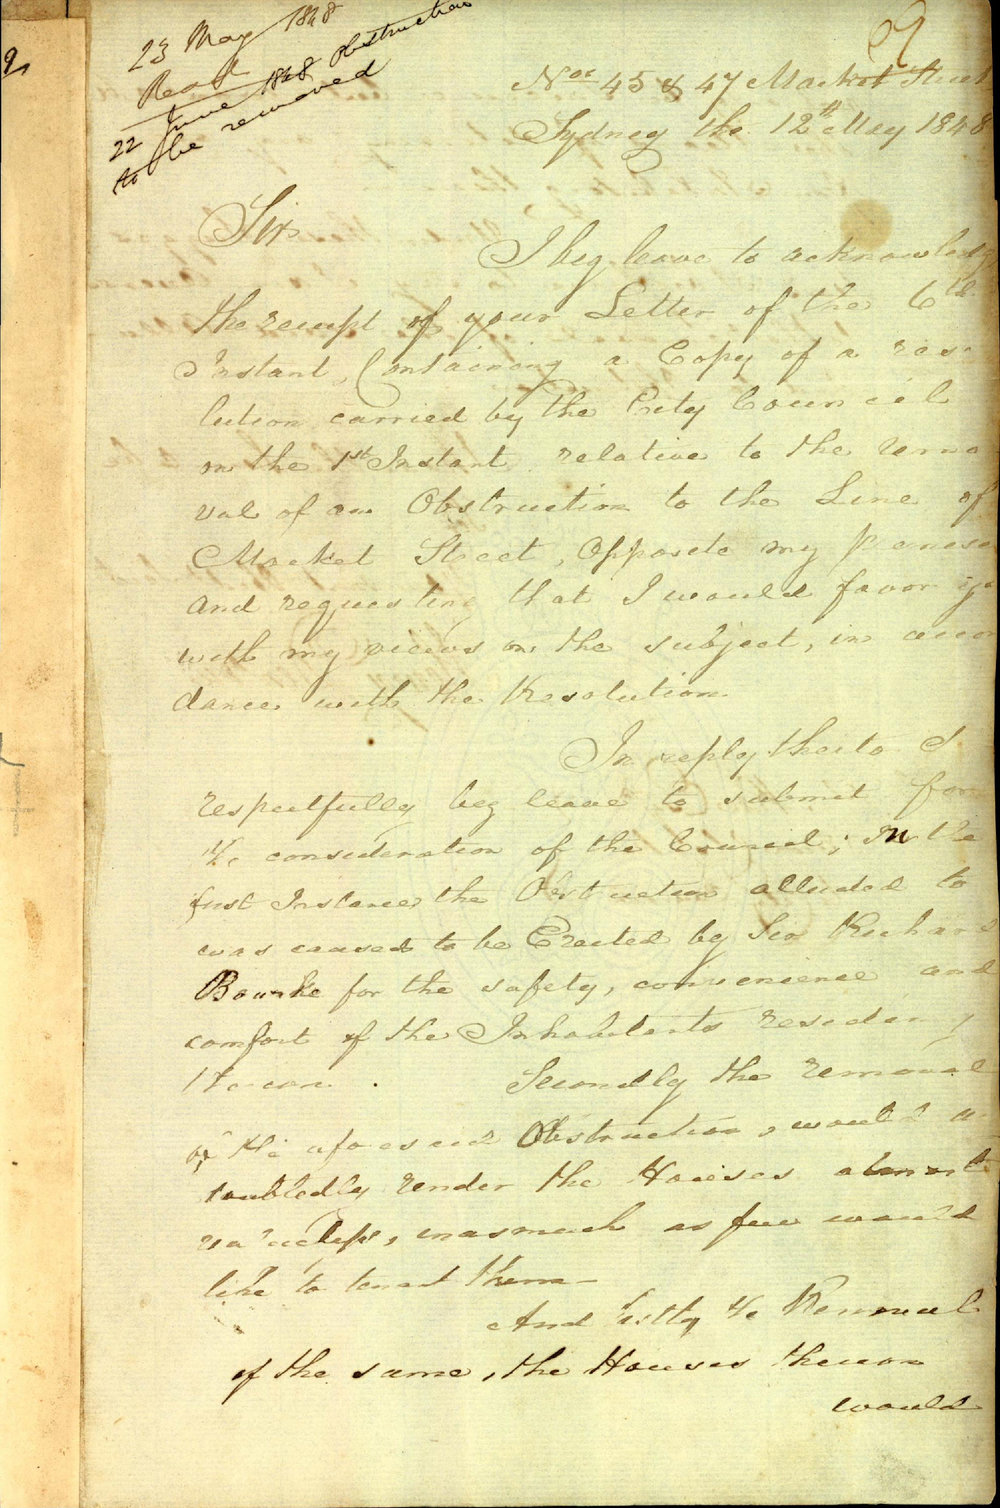 23 May 1848
Read
22 June 1848 Obstruction
to be removed
9
Nos 45 & 47 Market Street
Sydney the 12th May 1848
Sir
I beg leave to acknowledg
the receipt of your Letter of the 6th
Instant, Containing a Copy of a reso
lution carried by the City Council
on the 1st Instant relative to the remo
val of an Obstruction to the Line of
Market Street, Opposite my premises
and requesting that I would favor you
with my views on the subject, in accor
dance with the Resolution
In reply thereto I
respectfully beg leave to submit for
the consideration of the Council; In the
first Instance the Obstruction alluded to
was caused to be Erected by Sir Richard
Bourke for the safety, convenience and
comfort of the Inhabitants residing
thereon. Secondly the removal
of the aforesaid Obstruction, would un
doubtedly render the Houses almost
valueless, inasmuch as few would
like to tenant them—
And lastly the Removal
of the same, the Houses thereon
would